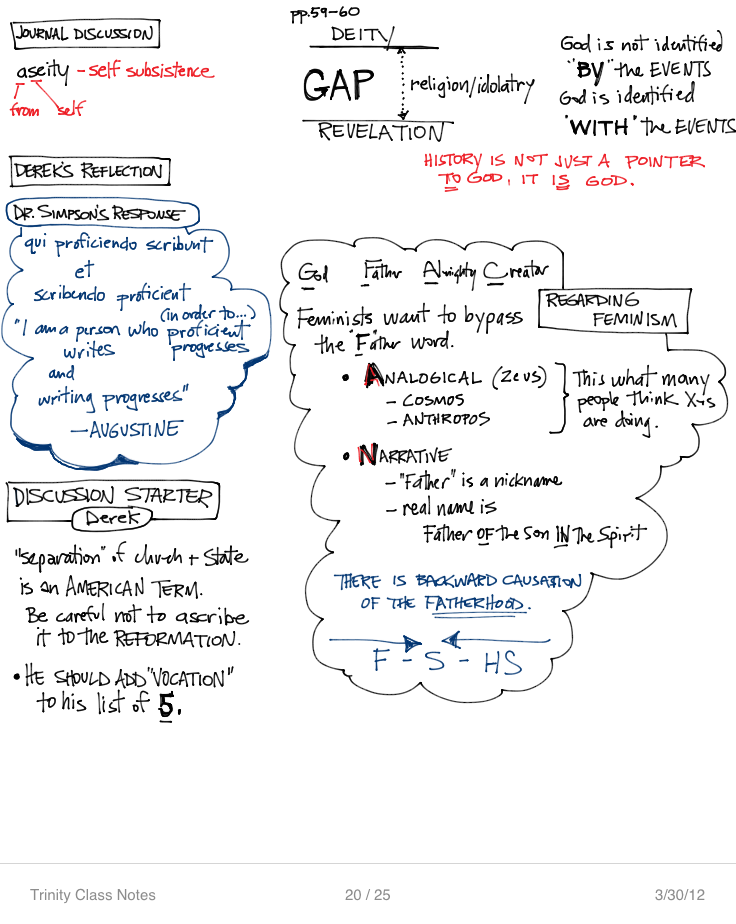 JOURNAL DISCUSSION
aseity - self subsistence
from self
pp.59-60
DEITY
GAP
religion/idolatry
REVELATION
God is not identified
"BY" the EVENTS
God is identified
"WITH" the EVENTS
HISTORY IS NOT JUST A POINTER
TO GOD, IT IS GOD.
DEREK'S REFLECTION
DR. SIMPSON'S RESPONSE
qui proficiendo scribunt
et
scribendo proficient
(in order to...)
"I am a person who proficient
writes progresses
and
writing progresses"
—AUGUSTINE
DISCUSSION STARTER
Derek
"separation" of church + State
is an AMERICAN TERM.
Be careful not to ascribe
it to the REFORMATION.
• HE SHOULD ADD "VOCATION"
to his list of 5.
God Father Almighty Creator
REGARDING
FEMINISM
Feminists want to bypass
the "Father" word.
• ANALOGICAL (Zeus)
- COSMOS
- ANTHROPOS
This what many
people think X-is
are doing.
• NARRATIVE
- "Father" is a nickname
- real name is
Father OF the Son IN the Spirit
THERE IS BACKWARD CAUSATION
OF THE FATHERHOOD.
F - S - HS
Trinity Class Notes
20 / 25
3/30/12